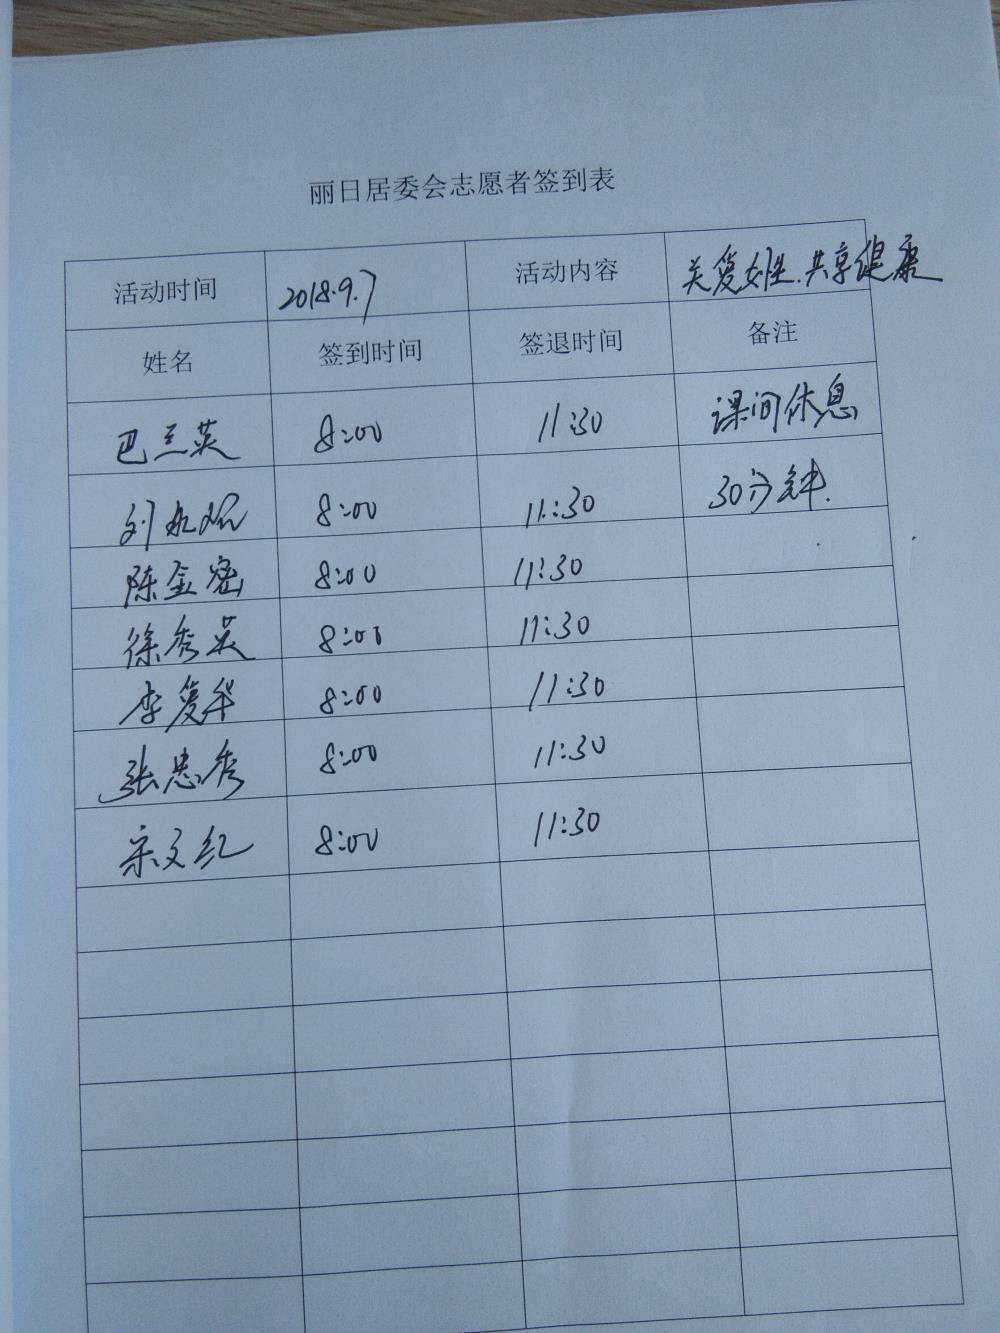 丽日居委会志愿者签到表
活动时间 2018.9.7 活动内容 关爱女性.共享健康
姓名 签到时间 签退时间 备注
巴兰英 8:00 11:30 课间休息
刘 8:00 11:30 30分钟.
陈金密 8:00 11:30
徐秀英 8:00 11:30
李爱华 8:00 11:30
张忠秀 8:00 11:30
宋文红 8:00 11:30